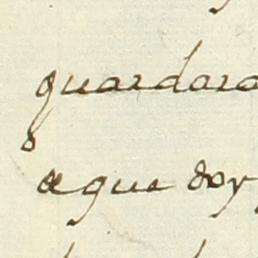 guardara
aque doy